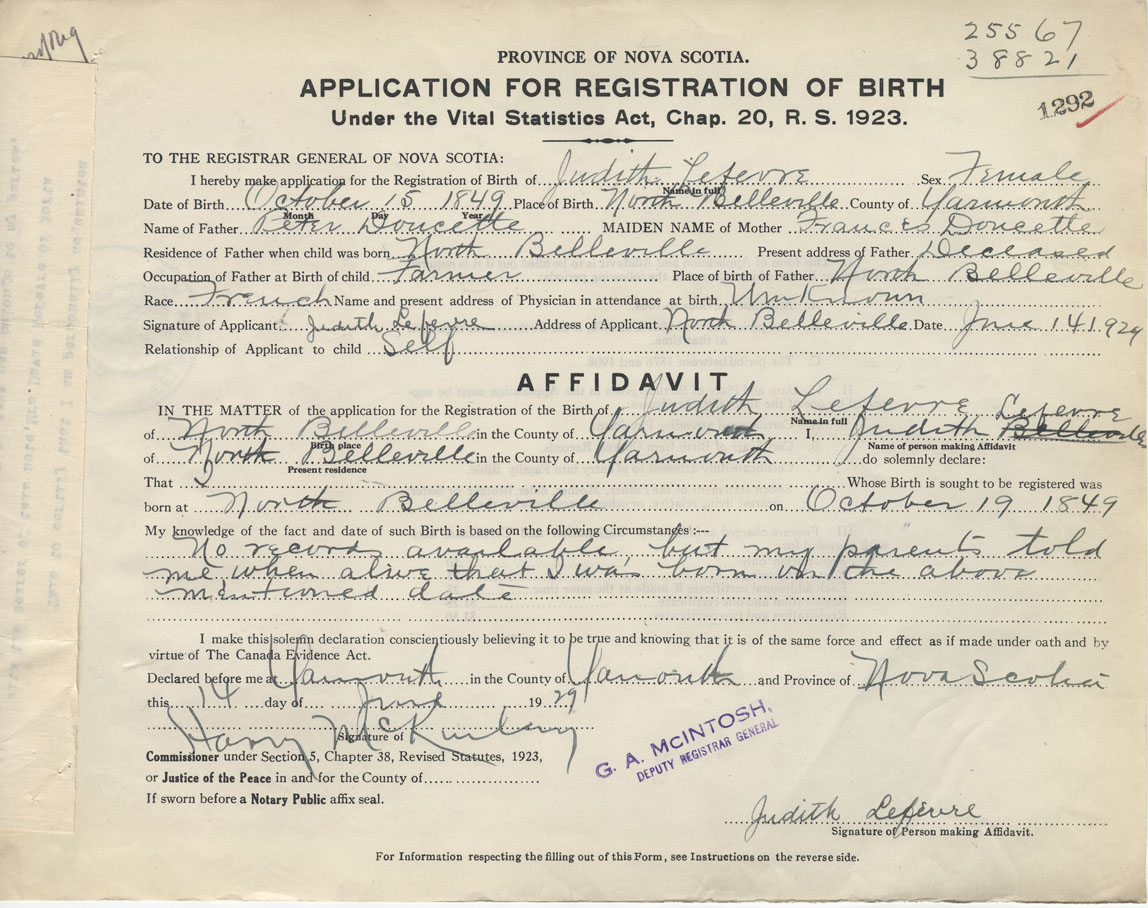 25567
38821
1292
PROVINCE OF NOVA SCOTIA.
APPLICATION FOR REGISTRATION OF BIRTH
Under the Vital Statistics Act, Chap. 20, R. S. 1923.
TO THE REGISTRAR GENERAL OF NOVA SCOTIA:
I hereby make application for the Registration of Birth of Judith Lefevre Sex Female
Name in full
Date of Birth October 15 1849 Place of Birth North Belleville County of Yarmouth
Month Day Year
Name of Father Peter Doucette MAIDEN NAME of Mother Frances Doucette
Residence of Father when child was born North Belleville Present address of Father Deceased
Occupation of Father at Birth of child Farmer Place of birth of Father North Belleville
Race French Name and present address of Physician in attendance at birth Unknown
Signature of Applicant Judith Lefevre Address of Applicant North Belleville Date June 14 1929
Relationship of Applicant to child Self
AFFIDAVIT
IN THE MATTER of the application for the Registration of the Birth of Judith Lefevre
Name in full
Lefevre
of North Belleville in the County of Yarmouth I, Judith Belleville
Birth place Name of person making Affidavit
of North Belleville in the County of Yarmouth do solemnly declare:
Present residence
That I Whose Birth is sought to be registered was
born at North Belleville on October 19 1849
My knowledge of the fact and date of such Birth is based on the following Circumstances :---
No records available, but my parents told
me when alive that I was born on the above
mentioned date
I make this solemn declaration conscientiously believing it to be true and knowing that it is of the same force and effect as if made under oath and by
virtue of The Canada Evidence Act.
Declared before me at Yarmouth in the County of Yarmouth and Province of Nova Scotia
this 14 day of June 1929
Harry McKinley
Signature of
Commissioner under Section 5, Chapter 38, Revised Statutes, 1923,
or Justice of the Peace in and for the County of
If sworn before a Notary Public affix seal.
G. A. MCINTOSH,
DEPUTY REGISTRAR GENERAL
Judith Lefevre
Signature of Person making Affidavit.
For Information respecting the filling out of this Form, see Instructions on the reverse side.